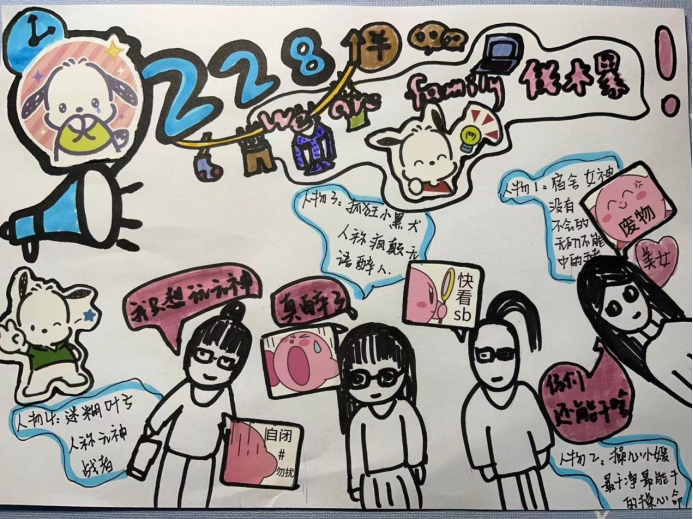 228
We are family
人物1：宿舍女神
没有
不会的
无所不能
废物
美女
人物3：抓狂小黑犬
人称疯颠无
语醉人
我只想玩元神
真醉了
快看
sb
你们
还能干啥
人物4：迷糊叶子
人称元神
战者
自闭
#
勿扰
人物2：操心小媛
最干净最能干
的操心命